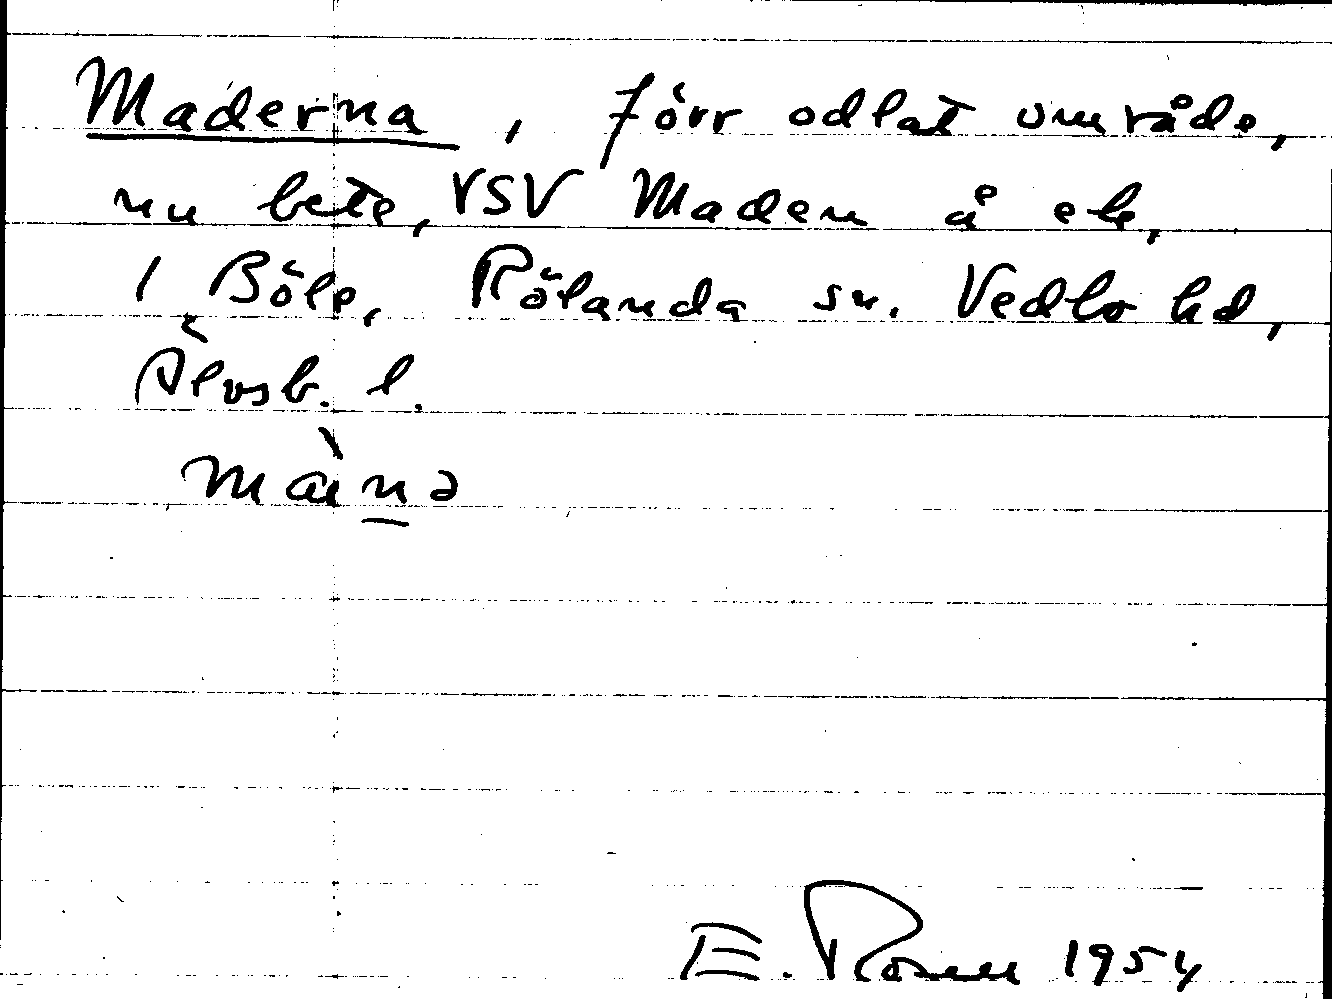 Maderna, förr odlat område,
nu bete, VSV Maden å ek,
1 Böle, Rölanda sn. Vedbo hd,
Älvsb. l.
E. Rosell 1954